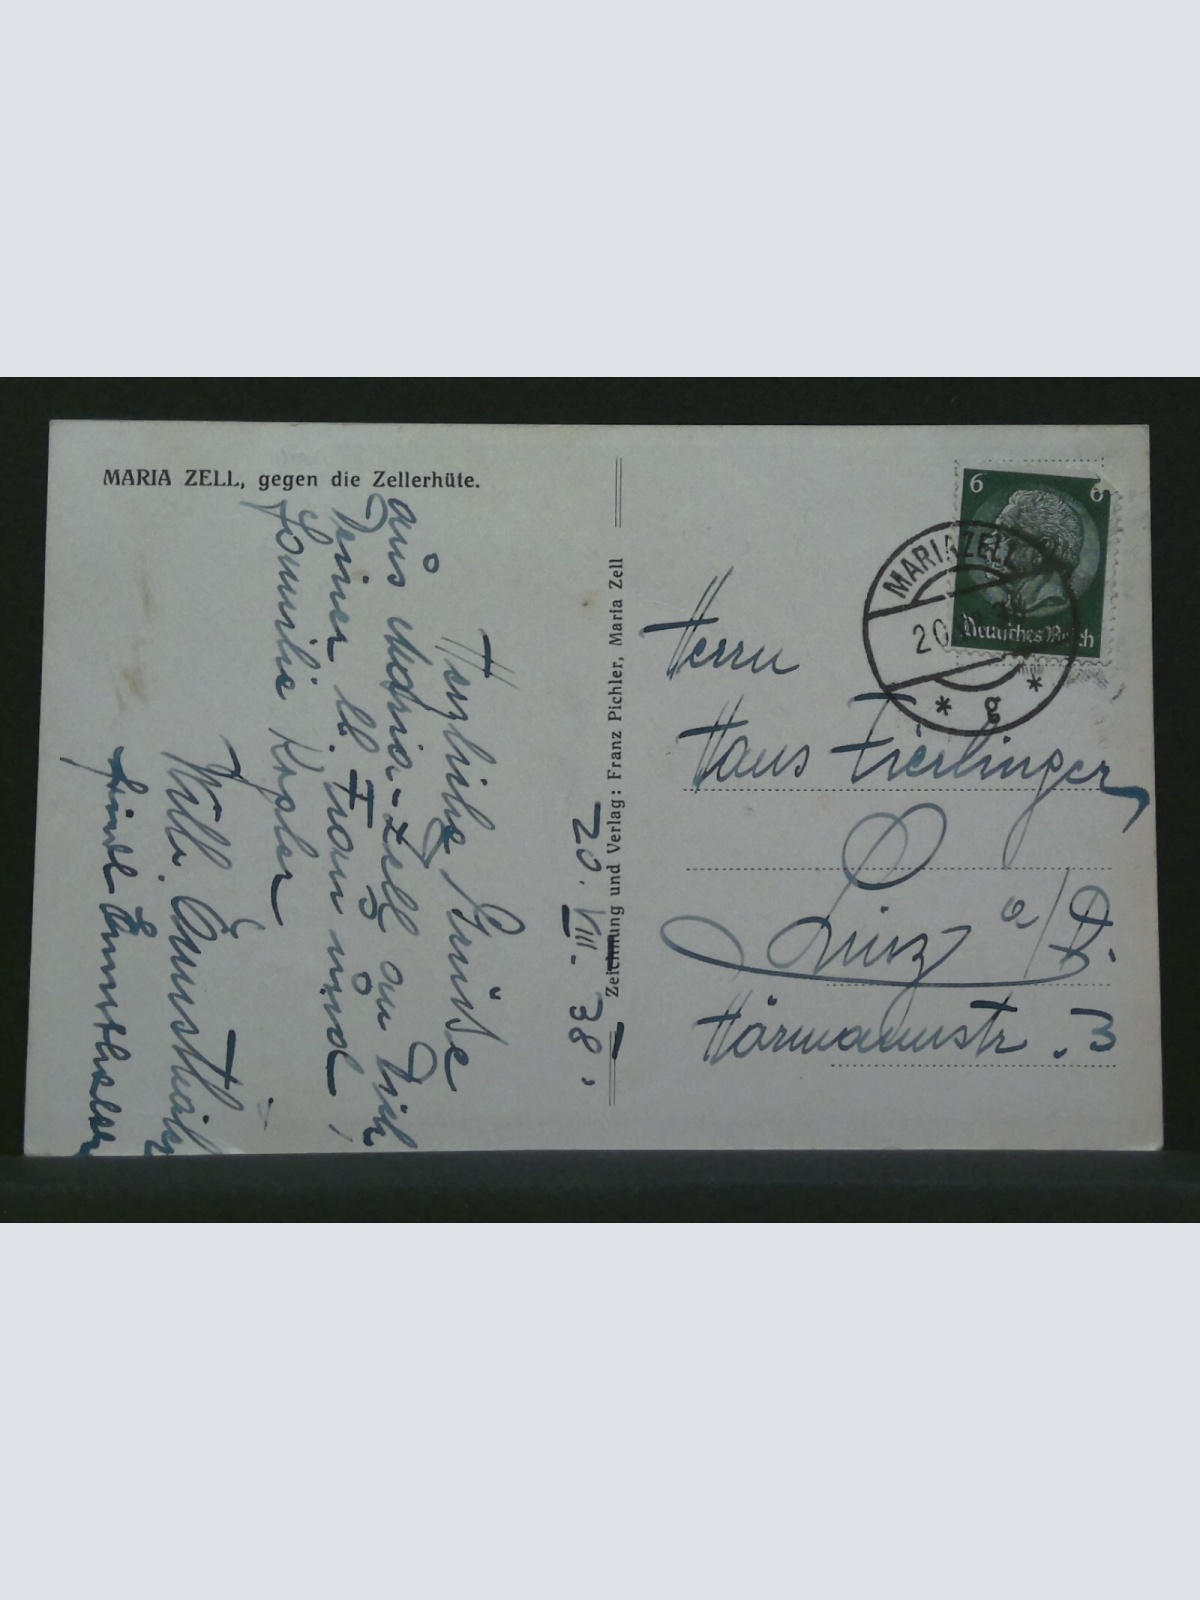 MARIA ZELL, gegen die Zellerhüte.
20. VIII. 38.
Herzliche Grüße
aus Maria-Zell an Dich
Deiner lb. Frau und
Familie Kepler
Willi
Zeichnung und Verlag: Franz Pichler, Maria Zell
6 6
Deutsches Reich
MARIAZELL
20
* a *
Herrn
Hans Zierlinger
Linz a/D.
Hörmannstr. 3